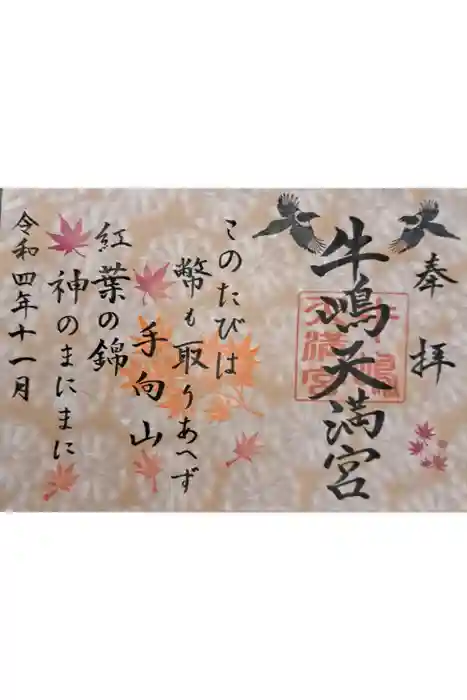 奉拝
牛嶋天満宮
牛嶋
天満宮
このたびは
幣も取りあへず
手向山
紅葉の錦
神のまにまに
令和四年十一月